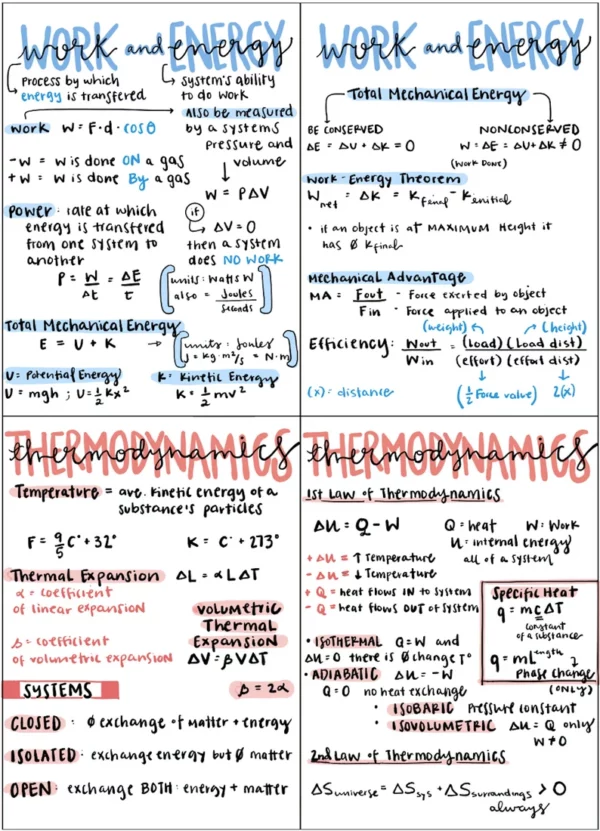 WORK and ENERGY
process by which
energy is transfered
system's ability
to do work
Also be measured
by a systems
pressure and
volume
W = PΔV
Work W = F·d·cosθ
-W = W is done ON a gas
+W = W is done By a gas
Power: rate at which
energy is transfered
from one system to
another
if
ΔV = 0
then a system
does NO WORK
P = W/Δt = ΔE/t
units: Watts W
also = Joules/seconds
Total Mechanical Energy
E = U + K → units: Joules
J = kg·m²/s² = N·m
U = Potential Energy
U = mgh ; U = 1/2 kx²
K = Kinetic Energy
K = 1/2 mv²
WORK and ENERGY
Total Mechanical Energy
BE CONSERVED
ΔE = ΔU + ΔK = 0
NONCONSERVED
W = ΔE = ΔU + ΔK ≠ 0
(WORK DONE)
Work-Energy Theorem
Wnet = ΔK = Kfinal - Kinitial
• if an object is at MAXIMUM Height it
has Ø Kfinal
Mechanical Advantage
MA = Fout - Force exerted by object
Fin - Force applied to an object
(weight) (height)
Efficiency: Wout/Win = (Load)(Load dist)/(effort)(effort dist)
(x) = distance
(1/2 Force value) 2(x)
THERMODYNAMICS
Temperature = ave. kinetic energy of a
substance's particles
F = 9/5 C° + 32°
K = C° + 273°
Thermal Expansion ΔL = αLΔT
α = coefficient
of linear expansion
β = coefficient
of volumetric expansion
Volumetric
Thermal
Expansion
ΔV = βVΔT
β = 2α
SYSTEMS
CLOSED: Ø exchange of matter + energy
ISOLATED: exchange energy but Ø matter
OPEN: exchange BOTH: energy + matter
THERMODYNAMICS
1st Law of Thermodynamics
ΔU = Q - W
Q = heat W = Work
U = internal energy
all of a system
+ΔU = ↑ Temperature
-ΔU = ↓ Temperature
+Q = heat flows IN to system
-Q = heat flows OUT of system
Specific Heat
q = mcΔT
constant
of a substance
q = mL
phase change
(ONLY)
• ISOTHERMAL Q = W and
ΔU = 0 there is Ø change T°
• ADIABATIC ΔU = -W
Q = 0 no heat exchange
• ISOBARIC Pressure constant
• ISOVOLUMETRIC ΔU = Q only
W ≠ 0
2nd Law of Thermodynamics
ΔSuniverse = ΔSsys + ΔSsurrandings > 0
always